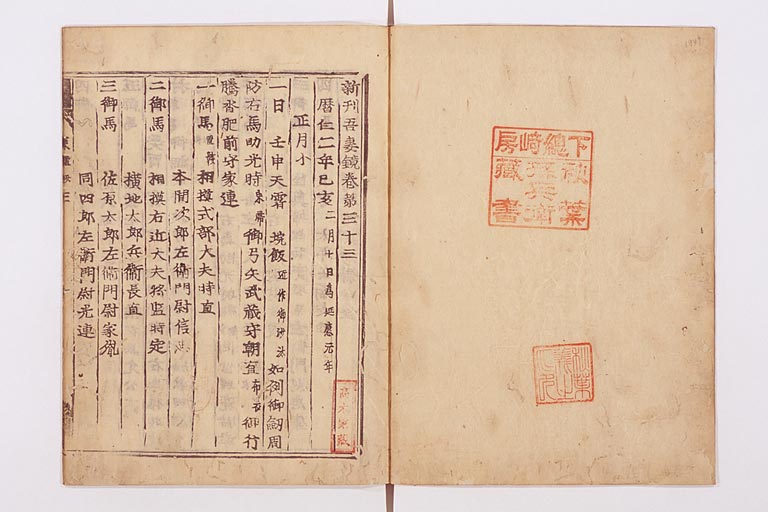 下總崎房
秋葉孫兵衛
藏書
新刊吾妻鏡卷第三十三
四 曆仁二年己亥 二月七日爲延應元年
正月小
一日 壬申天霽 垸飯 匠作御沙汰 如例御劔周
防右馬助光時 御弓矢武藏守朝直 布衣 御行
騰沓肥前守家連
一御馬 相摸式部大夫時直
本間次郎左衛門尉信忠
二御馬 相摸右近大夫將監時定
橫地太郎兵衛長直
三御馬 佐原太郎左衛門尉家胤
同四郎左衛門尉光連